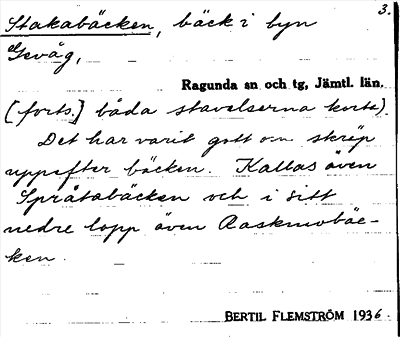 3.
Stakabäcken, bäck i byn
Gevåg,
Ragunda sn och tg, Jämtl. län.
[forts.] båda stavelserna korta).
Det har varit gott om skräp
uppefter bäcken. Kallas även
Språtabäcken och i sitt
nedre lopp även Raskmobäc-
ken.
BERTIL FLEMSTRÖM 1936.